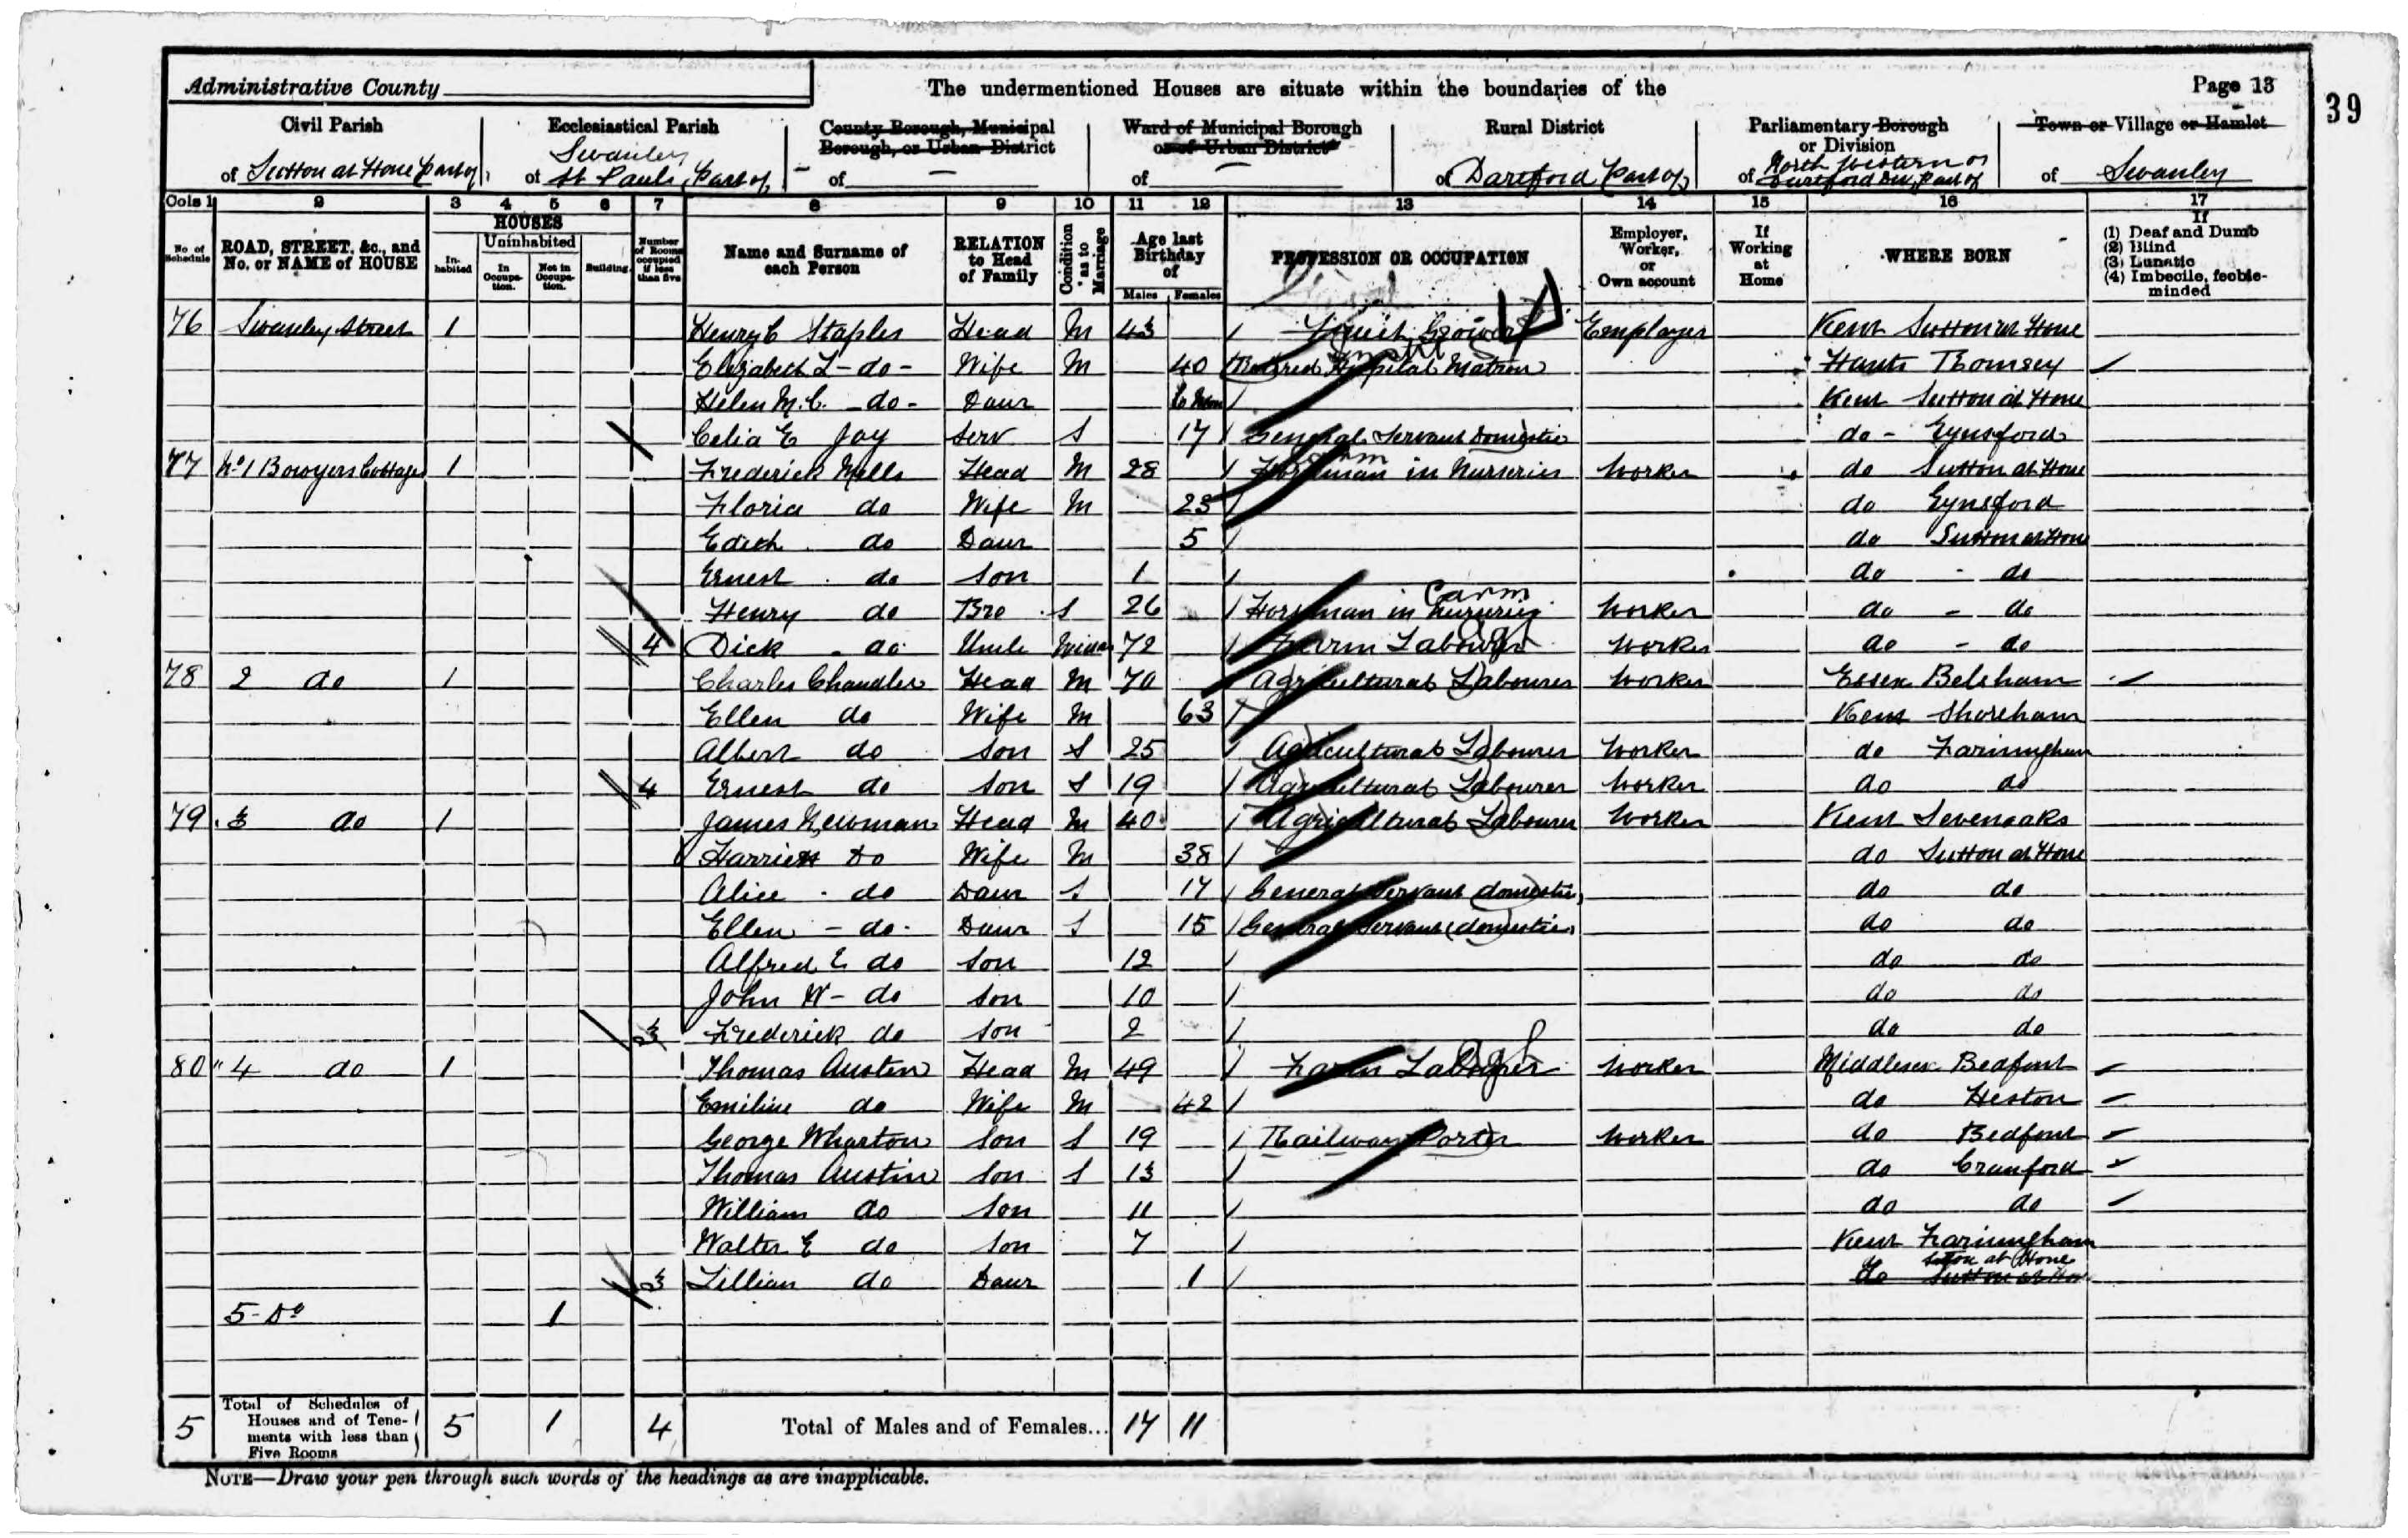 Administrative County
The undermentioned Houses are situate within the boundaries of the
Page 13
39
Civil Parish
of Sutton at Hone (part of)
Ecclesiastical Parish
Swanley
of St Pauls (part of)
County Borough, Municipal
Borough, or Urban District
of —
Ward of Municipal Borough
or of Urban District
of —
Rural District
of Dartford (part of)
Parliamentary Borough
or Division
North Western or
of Dartford Div, part of
Town or Village or Hamlet
of Swanley
Cols 1 2 3 4 5 6 7 8 9 10 11 12 13 14 15 16 17
No. of Schedule
ROAD, STREET, &c., and No. or NAME of HOUSE
HOUSES
Inhabited
Uninhabited
In Occupation.
Not in Occupation.
Building.
Number of Rooms occupied if less than five
Name and Surname of each Person
RELATION to Head of Family
Condition as to Marriage
Age last Birthday of
Males Females
PROFESSION OR OCCUPATION
Employer, Worker, or Own account
If Working at Home
WHERE BORN
If
(1) Deaf and Dumb
(2) Blind
(3) Lunatic
(4) Imbecile, feeble-minded
76 Swanley Street 1 Henry C Staples Head M 43 Fruit Grower Employer Kent Sutton at Hone
Elizabeth L - do - Wife M 40 Retired Hospital Matron Hants Romsey
Helen M.C. - do - Daur 6 Mon Kent Sutton at Hone
Celia E Joy Serv S 17 General Servant Domestic do - Eynsford
77 No 1 Bowyers Cottages 1 Frederick Mills Head M 28 Horseman in Nurseries Worker do Sutton at Hone
Floria do Wife M 23 do Eynsford
Edith do Daur 5 do Sutton at Hone
Ernest do Son 1 do - do
Henry do Bro S 26 Horseman in Nurseries Farm Worker do - do
4 Dick do Uncle 72 Farm Labourer Ag Worker do - do
78 2 do 1 Charles Chandler Head M 70 Agricultural Labourer Worker Essex
Ellen do Wife M 63 Kent Shoreham
Albert do Son S 25 Agricultural Labourer Worker do Farningham
4 Ernest do Son S 19 Agricultural Labourer Worker do do
79 3 do 1 James Newman Head M 40 Agricultural Labourer Worker Kent Sevenoaks
Harriett Do Wife M 38 do Sutton at Hone
Alice - do Daur S 17 General Servant domestic do do
Ellen - do Daur S 15 General Servant (domestic) do do
Alfred E do Son 12 do do
John W - do Son 10 do do
3 Frederick do Son 2 do do
80 4 do 1 Thomas Austin Head M 49 Farm Labourer Ag Worker Middlesex Bedfont
Emiline do Wife M 42 do Heston
George Wharton Son S 19 Railway Porter Worker do Bedfont
Thomas Austin Son S 13 do Cranford
William do Son 11 do do
Walter E do Son 7 Kent Farningham
3 Lillian do Daur 1 do Sutton at Hone
5 - Do 1
5 Total of Schedules of Houses and of Tenements with less than Five Rooms 5 1 4 Total of Males and of Females... 17 11
NOTE—Draw your pen through such words of the headings as are inapplicable.